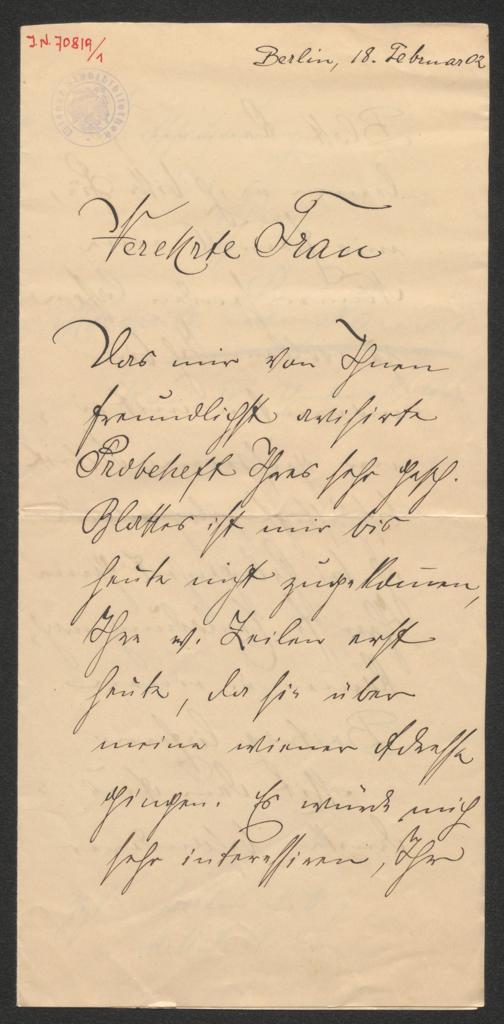 J.N. 70819/1
Berlin, 18. Februar 02
Verehrte Frau
Das mir von Ihnen
freundlichst avisirte
Probeheft Ihres sehr gesch.
Blattes ist mir bis
heute nicht zugekom̅en,
Ihre w. Zeilen erst
heute, da sie über
meine wiener Adresse
gingen. Es würde mich
sehr interessiren, Ihr